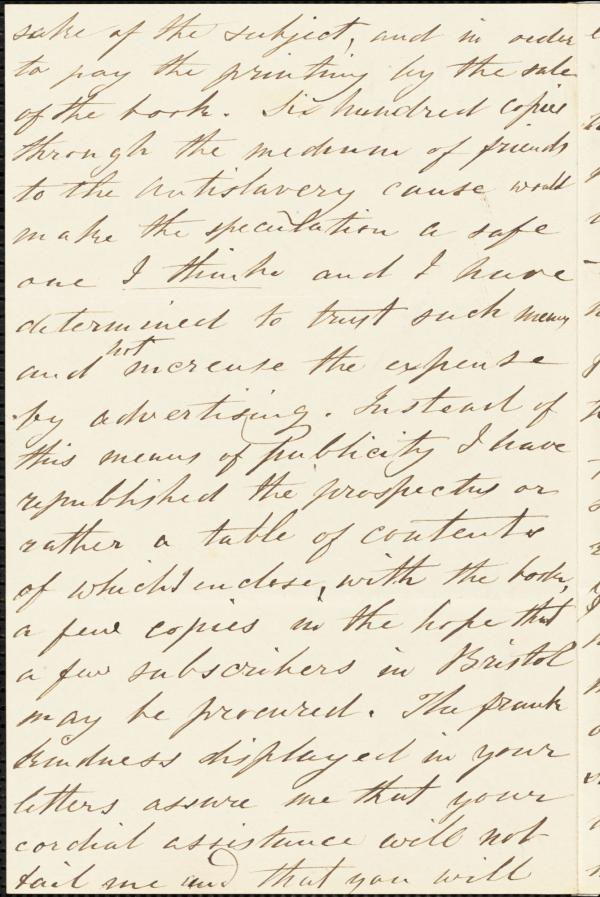 sake of the subject, and in order
to pay the printing by the sale
of the book. Six hundred copies
through the medium of friends
to the Antislavery cause would
make the speculation a safe
one I think and I have
determined to trust such means
and not increase the expense
by advertising. Instead of
this means of publicity I have
republished the prospectus or
rather a table of contents
of which I enclose, with the book,
a few copies in the hope that
a few subscribers in Bristol
may be procured. The frank
kindness displayed in your
letters assure me that your
cordial assistance will not
fail me and that you will